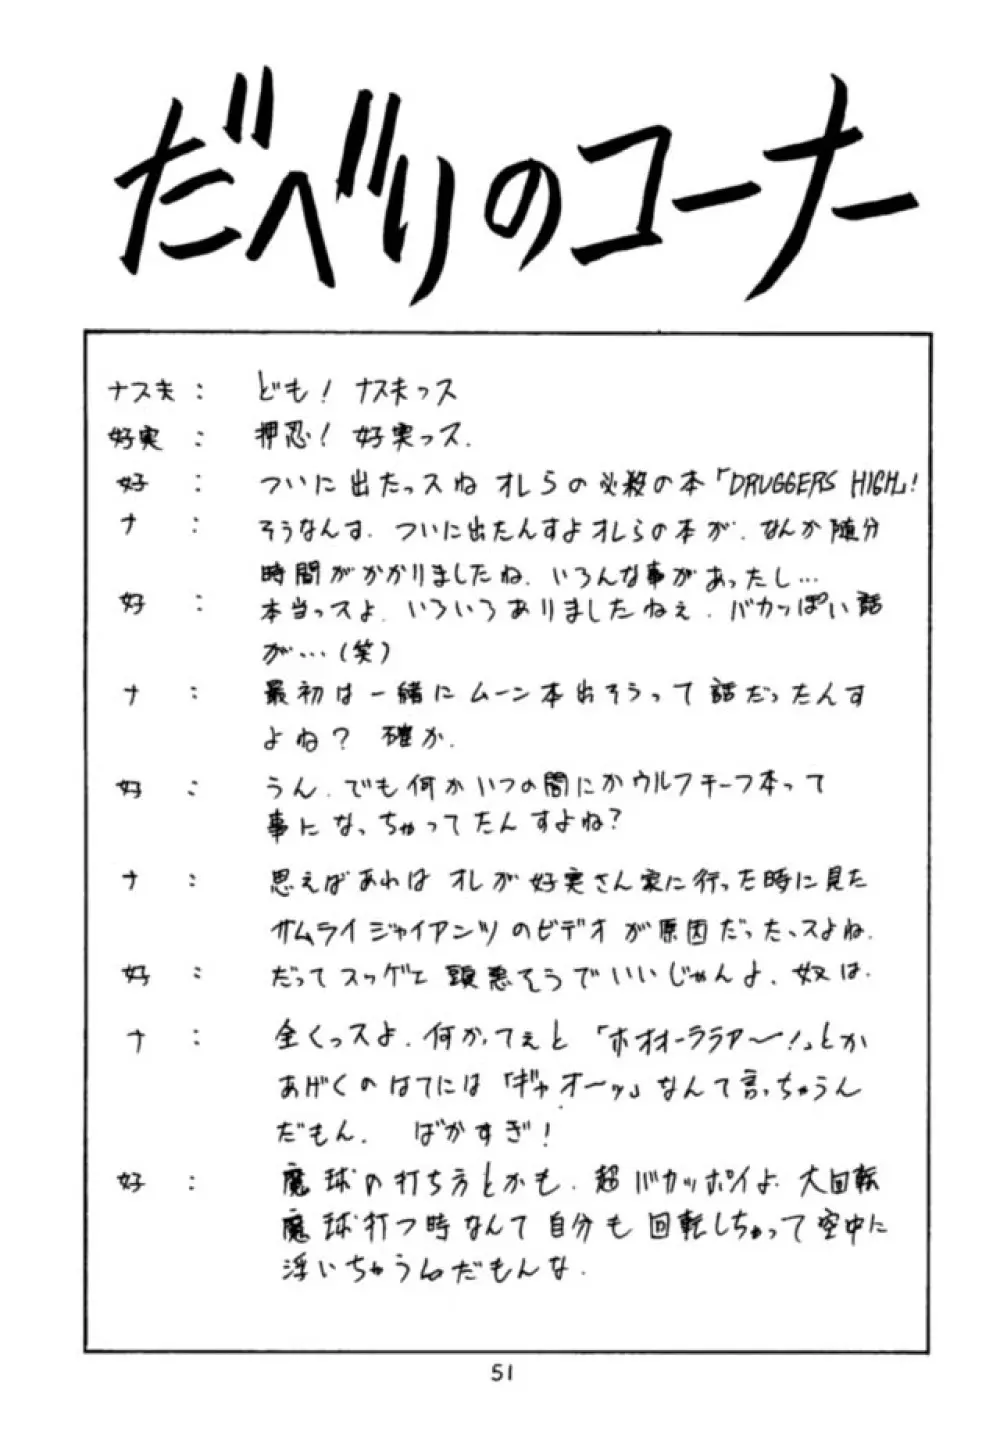 だべりのコーナー
ナス夫： ども！ ナス夫っス
好実： 押忍！ 好実っス．
好： ついに出たっスね オレらの必殺の本「DRUGGERS HIGH」！
ナ： そうなんす．ついに出たんすよオレらの本が．なんか随分
時間がかかりましたね．いろんな事があったし…
好： 本当っスよ．いろいろありましたねぇ．バカっぽい話
が…（笑）
ナ： 最初は一緒にムーン本出そうって話だったんす
よね？ 確か．
好： うん．でも何かいつの間にかウルフチーフ本って
事になっちゃってたんすよね？
ナ： 思えばあれはオレが好実さん家に行った時に見た
サムライジャイアンツのビデオが原因だったっスよね．
好： だってスッゲェ頭悪そうでいいじゃんよ．奴は．
ナ： 全くっスよ．何かってぇと「ホオオーララア〜！」とか
あげくのはてには「ギャオーッ」なんて言っちゃうん
だもん． ばかすぎ！
好： 魔球の打ち方とかも．超バカッポイよ．大回転
魔球打つ時なんて自分も回転しちゃって空中に
浮いちゃうんだもんな．
51